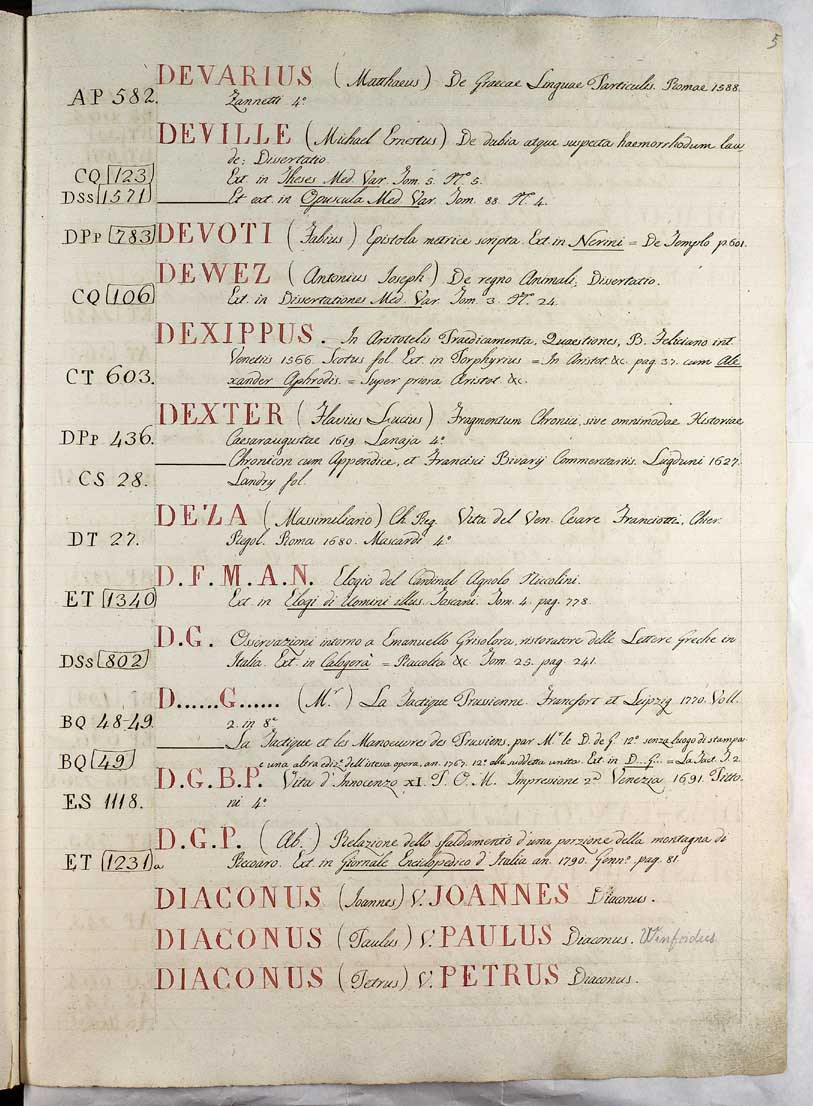 5
DEVARIUS (Matthaeus) De Graecae Linguae Particulis. Romae 1588.
AP 582. Zannetti 4°
DEVILLE (Michael Ernestus) De dubia atque suspecta haemorrhodum lau
de; Dissertatio.
CQ 123 Ext. in Theses Med. Var. Tom. 5. N.° 5.
DSs 1571 Et ext. in Opuscula Med. Var. Tom. 88. N.° 4.
DPp 783 DEVOTI (Fabius) Epistola metrice scripta. Ext. in Nerini = De Templo p. 601.
DEWEZ (Antonius Joseph) De regno Animali; Dissertatio.
CQ 106 Ext. in Dissertationes Med. Var. Tom. 3. N.° 24.
DEXIPPUS. In Aristotelis Praedicamenta, Quaestiones, B. Feliciano int.
Venetiis 1566. Scotus fol. Ext. in Porphyrius = In Aristot. &c. pag. 37. cum Ale
CT 603. xander Aphrodis. = Super priora Aristot. &c.
DEXTER (Flavius Lucius) Fragmentum Chronici, sive omnimodae Historiae
DPp 436. Caesaraugustae 1619. Lanaja 4°
Chronicon cum Appendice, et Francisci Bivarij Commentariis. Lugduni 1627.
CS 28. Landry fol.
DEZA (Massimiliano) Ch. Reg. Vita del Ven. Cesare Franciotti, Chier.
DT 27. Regol. Roma 1680. Mascardi 4°
D.F.M.A.N. Elogio del Cardinal Agnolo Niccolini.
ET 1340 Ext. in Elogi di Uomini illus. Toscani. Tom. 4. pag. 778.
D.G. Osservazioni intorno a Emanuello Grisolora, ristoratore delle Lettere Greche in
DSs 802 Italia. Ext. in Calogerà = Raccolta &c. Tom. 25. pag. 241.
D......G...... (M.r) La Tactique Prussienne. Francfort et Leipzig 1770. Voll.
BQ 48-49. 2. in 8°
La Tactique et les Manoeuvres des Prussiens, par M.r le D. de G. 12° senza luogo di stampa
BQ 49 e una altra ediz.e dell'istessa opera, an. 1767. 12° alla suddetta unita. Ext. in D...G.. = La Tact. T. 2.
D.G.B.P. Vita d'Innocenzo XI. P. O. M. Impressione 2.a Venezia 1691. Pitto
ES 1118. ni 4°
D.G.P. (Ab.) Relazione dello sfaldamento d'una porzione della montagna di
ET 1231 a Reccoaro. Ext. in Giornale Enciclopedico d'Italia an. 1790. Genn.° pag. 81.
DIACONUS (Joannes) V. JOANNES Diaconus.
DIACONUS (Paulus) V. PAULUS Diaconus.
DIACONUS (Petrus) V. PETRUS Diaconus.